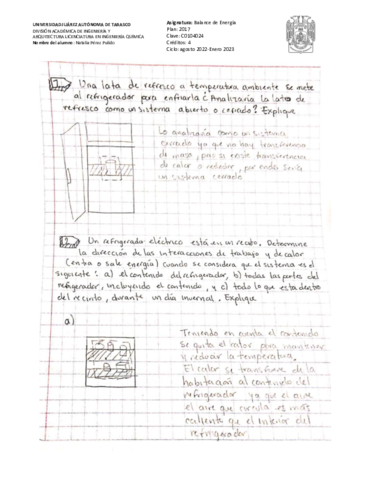 UNIVERSIDAD JUÁREZ AUTÓNOMA DE TABASCO
DIVISIÓN ACADÉMICA DE INGENIERÍA Y
ARQUITECTURA LICENCIATURA EN INGENIERÍA QUÍMICA
Nombre del alumno: Natalia Pérez Pulido
Asignatura: Balance de Energía
Plan: 2017
Clave: C0104024
Créditos: 4
Ciclo: agosto 2022-Enero 2023
1. Una lata de refresco a temperatura ambiente se mete
al refrigerador para enfriarla ¿Analizaría la lata de
refresco como un sistema abierto o cerrado? Explique
Lo analizaría como un sistema
cerrado ya que no hay transferencia
de masa, pero si existe transferencia
de calor o rededor, por ende sería
un sistema cerrado
2. Un refrigerador eléctrico está en un recato. Determine
la dirección de las interacciones de trabajo y de calor
(entra o sale energía) cuando se considera que el sistema es el
siguiente: a) el contenido del refrigerador, b) todas las partes del
refrigerador, incluyendo el contenido, y c) todo lo que esta dentro
del recinto, durante un dia invernal. Explique
a)
Teniendo en cuenta el contenido
se quita el calor para mantener
y reducir la temperatura.
El calor se transfiere de la
habitación al contenido del
refrigerador ya que el aire
el aire que circula es más
caliente que el interior del
refrigerador.